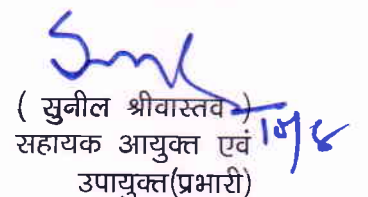 ( सुनील श्रीवास्तव )
सहायक आयुक्त एवं
उपायुक्त(प्रभारी)